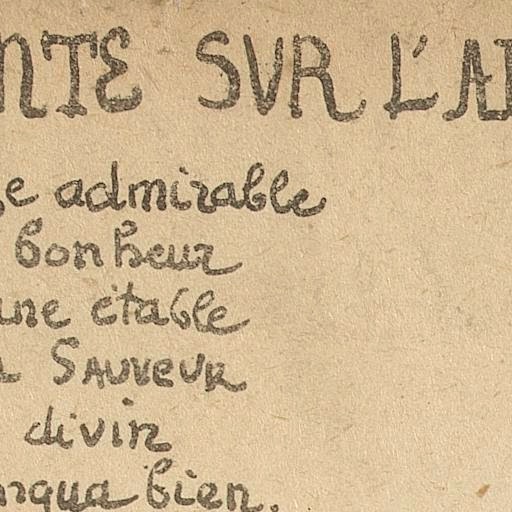 NTE SUR L'AI
e admirable
bonheur
une étable
SAUVEUR
divin
nqua bien.